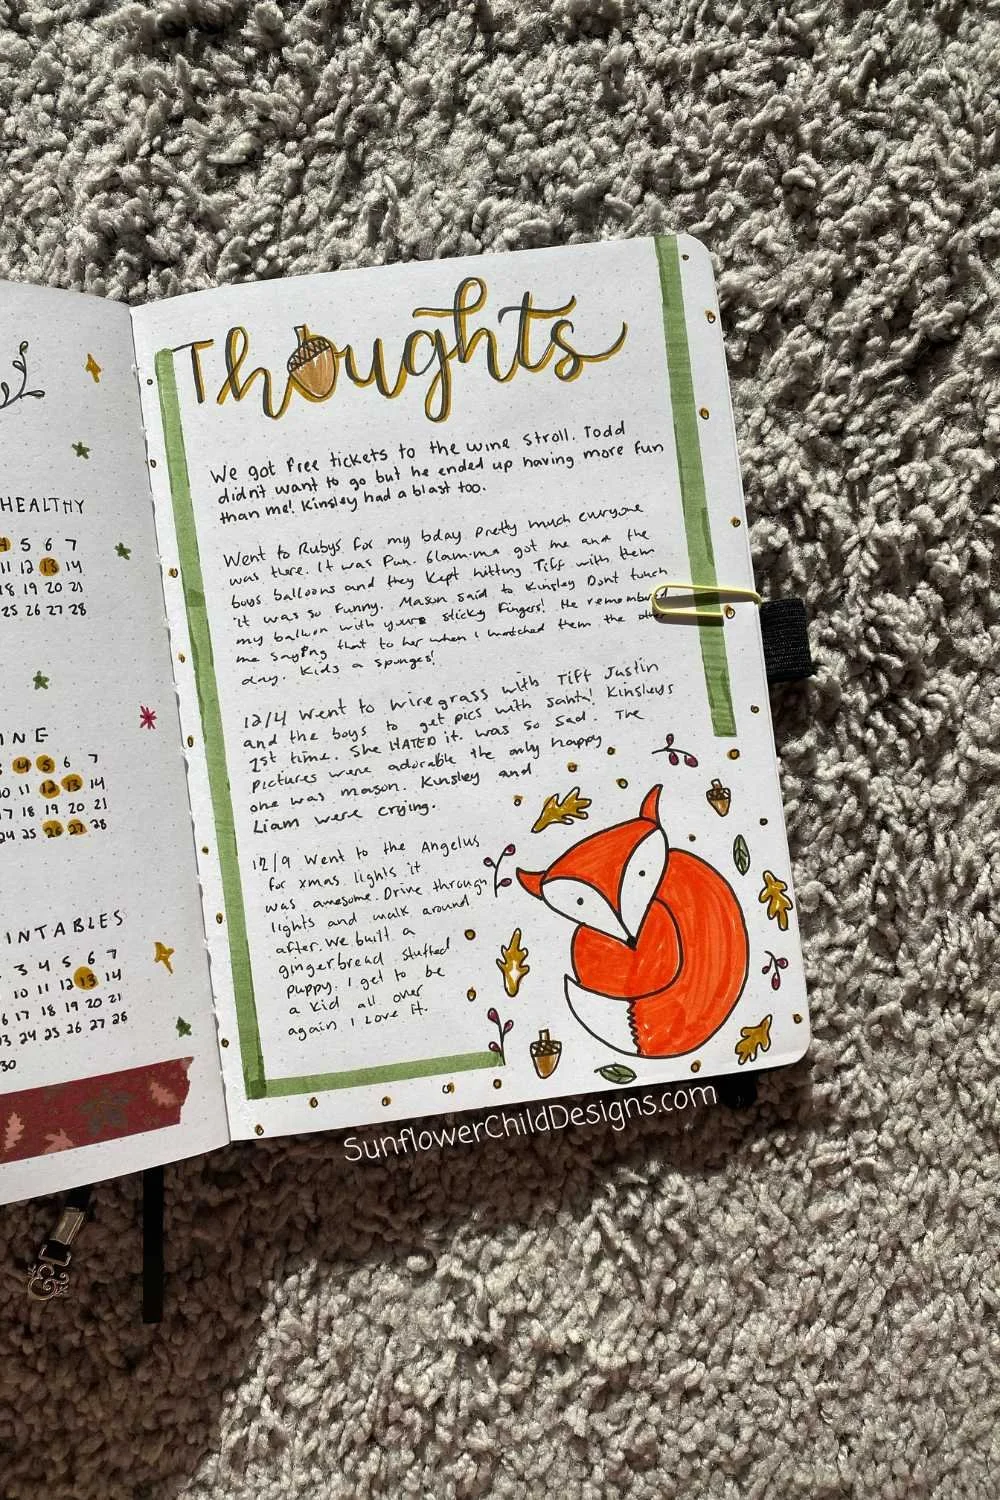 HEALTHY
4 5 6 7
11 12 13 14
18 19 20 21
25 26 27 28
INE
4 5 6 7
10 11 12 13 14
17 18 19 20 21
24 25 26 27 28
INTABLES
3 4 5 6 7
10 11 12 13 14
16 17 18 19 20 21
23 24 25 26 27 28
30
Thoughts
We got free tickets to the wine stroll. Todd
didn't want to go but he ended up having more fun
than me! Kinsley had a blast too.
Went to Rubys for my bday pretty much everyone
was there. It was fun. Glam-ma got me and the
boys balloons and they kept hitting Tiff with them
it was so funny. Mason said to Kinsley Dont touch
my balloon with your sticky fingers! He remembered
me saying that to her when I watched them the other
day. Kids a sponges!
12/4 Went to wiregrass with Tiff Justin
and the boys to get pics with Santa! Kinsleys
1st time. She HATED it. was so sad. The
pictures were adorable the only happy
one was mason. Kinsley and
Liam were crying.
12/9 Went to the Angelus
for xmas lights it
was awesome. Drive through
lights and walk around
after. We built a
gingerbread stuffed
puppy. I get to be
a kid all over
again I love it.
SunflowerChildDesigns.com